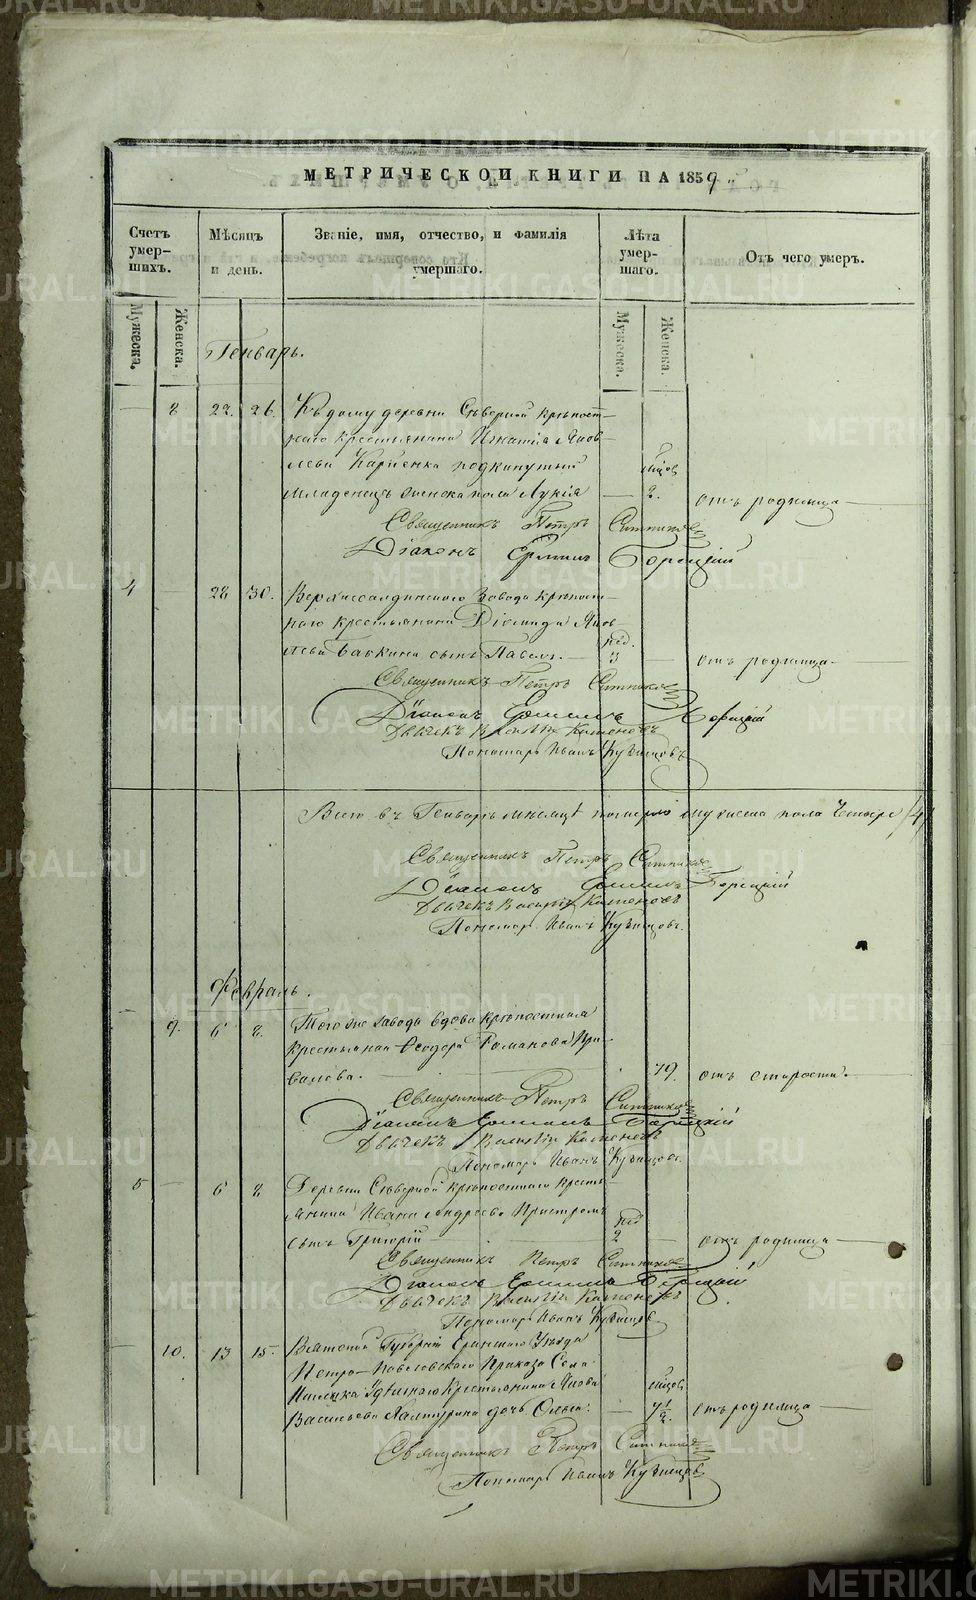 МЕТРИЧЕСКОЙ КНИГИ НА 1859
Счетъ умер-шихъ.
Мѣсяцъ и день.
Званіе, имя, отчество, и фамилія умершаго.
Лѣта умер-шаго.
Отъ чего умеръ.
Мужеска.
Женска.
Мужеска.
Женска.
Генварь.
8 22. 26. Къ дому деревни Сѣверной крѣпост-
наго крестьянина Игнатія Яков-
лева подкинутый мѣсяцъ
младенецъ женска пола Лукія — 2. отъ родимца
Священникъ Петръ Ситниковъ
Діаконъ Ермилъ Борецкій
4 — 28 30. Верхнесалдинскаго Завода крѣпост-
наго крестьянина Діомида Яков-
лева Бабкина сынъ Павелъ. — нед. 3 — отъ родимца
Священникъ Петръ Ситниковъ
Діаконъ Ермилъ Борецкій
Дьячекъ Василій
Пономарь Иванъ Кузнецовъ
Всего въ Генварѣ мѣсяцѣ померло мужеска пола Четыре /4/
Священникъ Петръ Ситниковъ
Діаконъ Ермилъ Борецкій
Дьячекъ Василій
Пономарь Иванъ Кузнецовъ.
Февраль.
9. 6 8. Того же завода вдова крѣпостная
крестьянка Ѳеодора Романова При-
валова. 79. отъ старости.
Священникъ Петръ Ситниковъ
Діаконъ Ермилъ Борецкій
Дьячекъ Василій
Пономарь Иванъ Кузнецовъ.
5 — 6 8 Деревни Сѣверной крѣпостнаго кресть-
янина Ивана Андреева нед
сынъ Григорій — 2 — отъ родимца
Священникъ Петръ Ситниковъ
Діаконъ Ермилъ Борецкій
Дьячекъ Василій
Пономарь Иванъ Кузнецовъ
10. 13 15. Вятской Губерніи Уѣзда
Петро-Павловскаго Приказа Села
Удѣльнаго Крестьянина Якова мѣсяцъ
Васильева дочь Ольга. — 7½. отъ родимца
Священникъ Петръ Ситниковъ
Пономарь Иванъ Кузнецовъ
METRIKI.GASO-URAL.RU